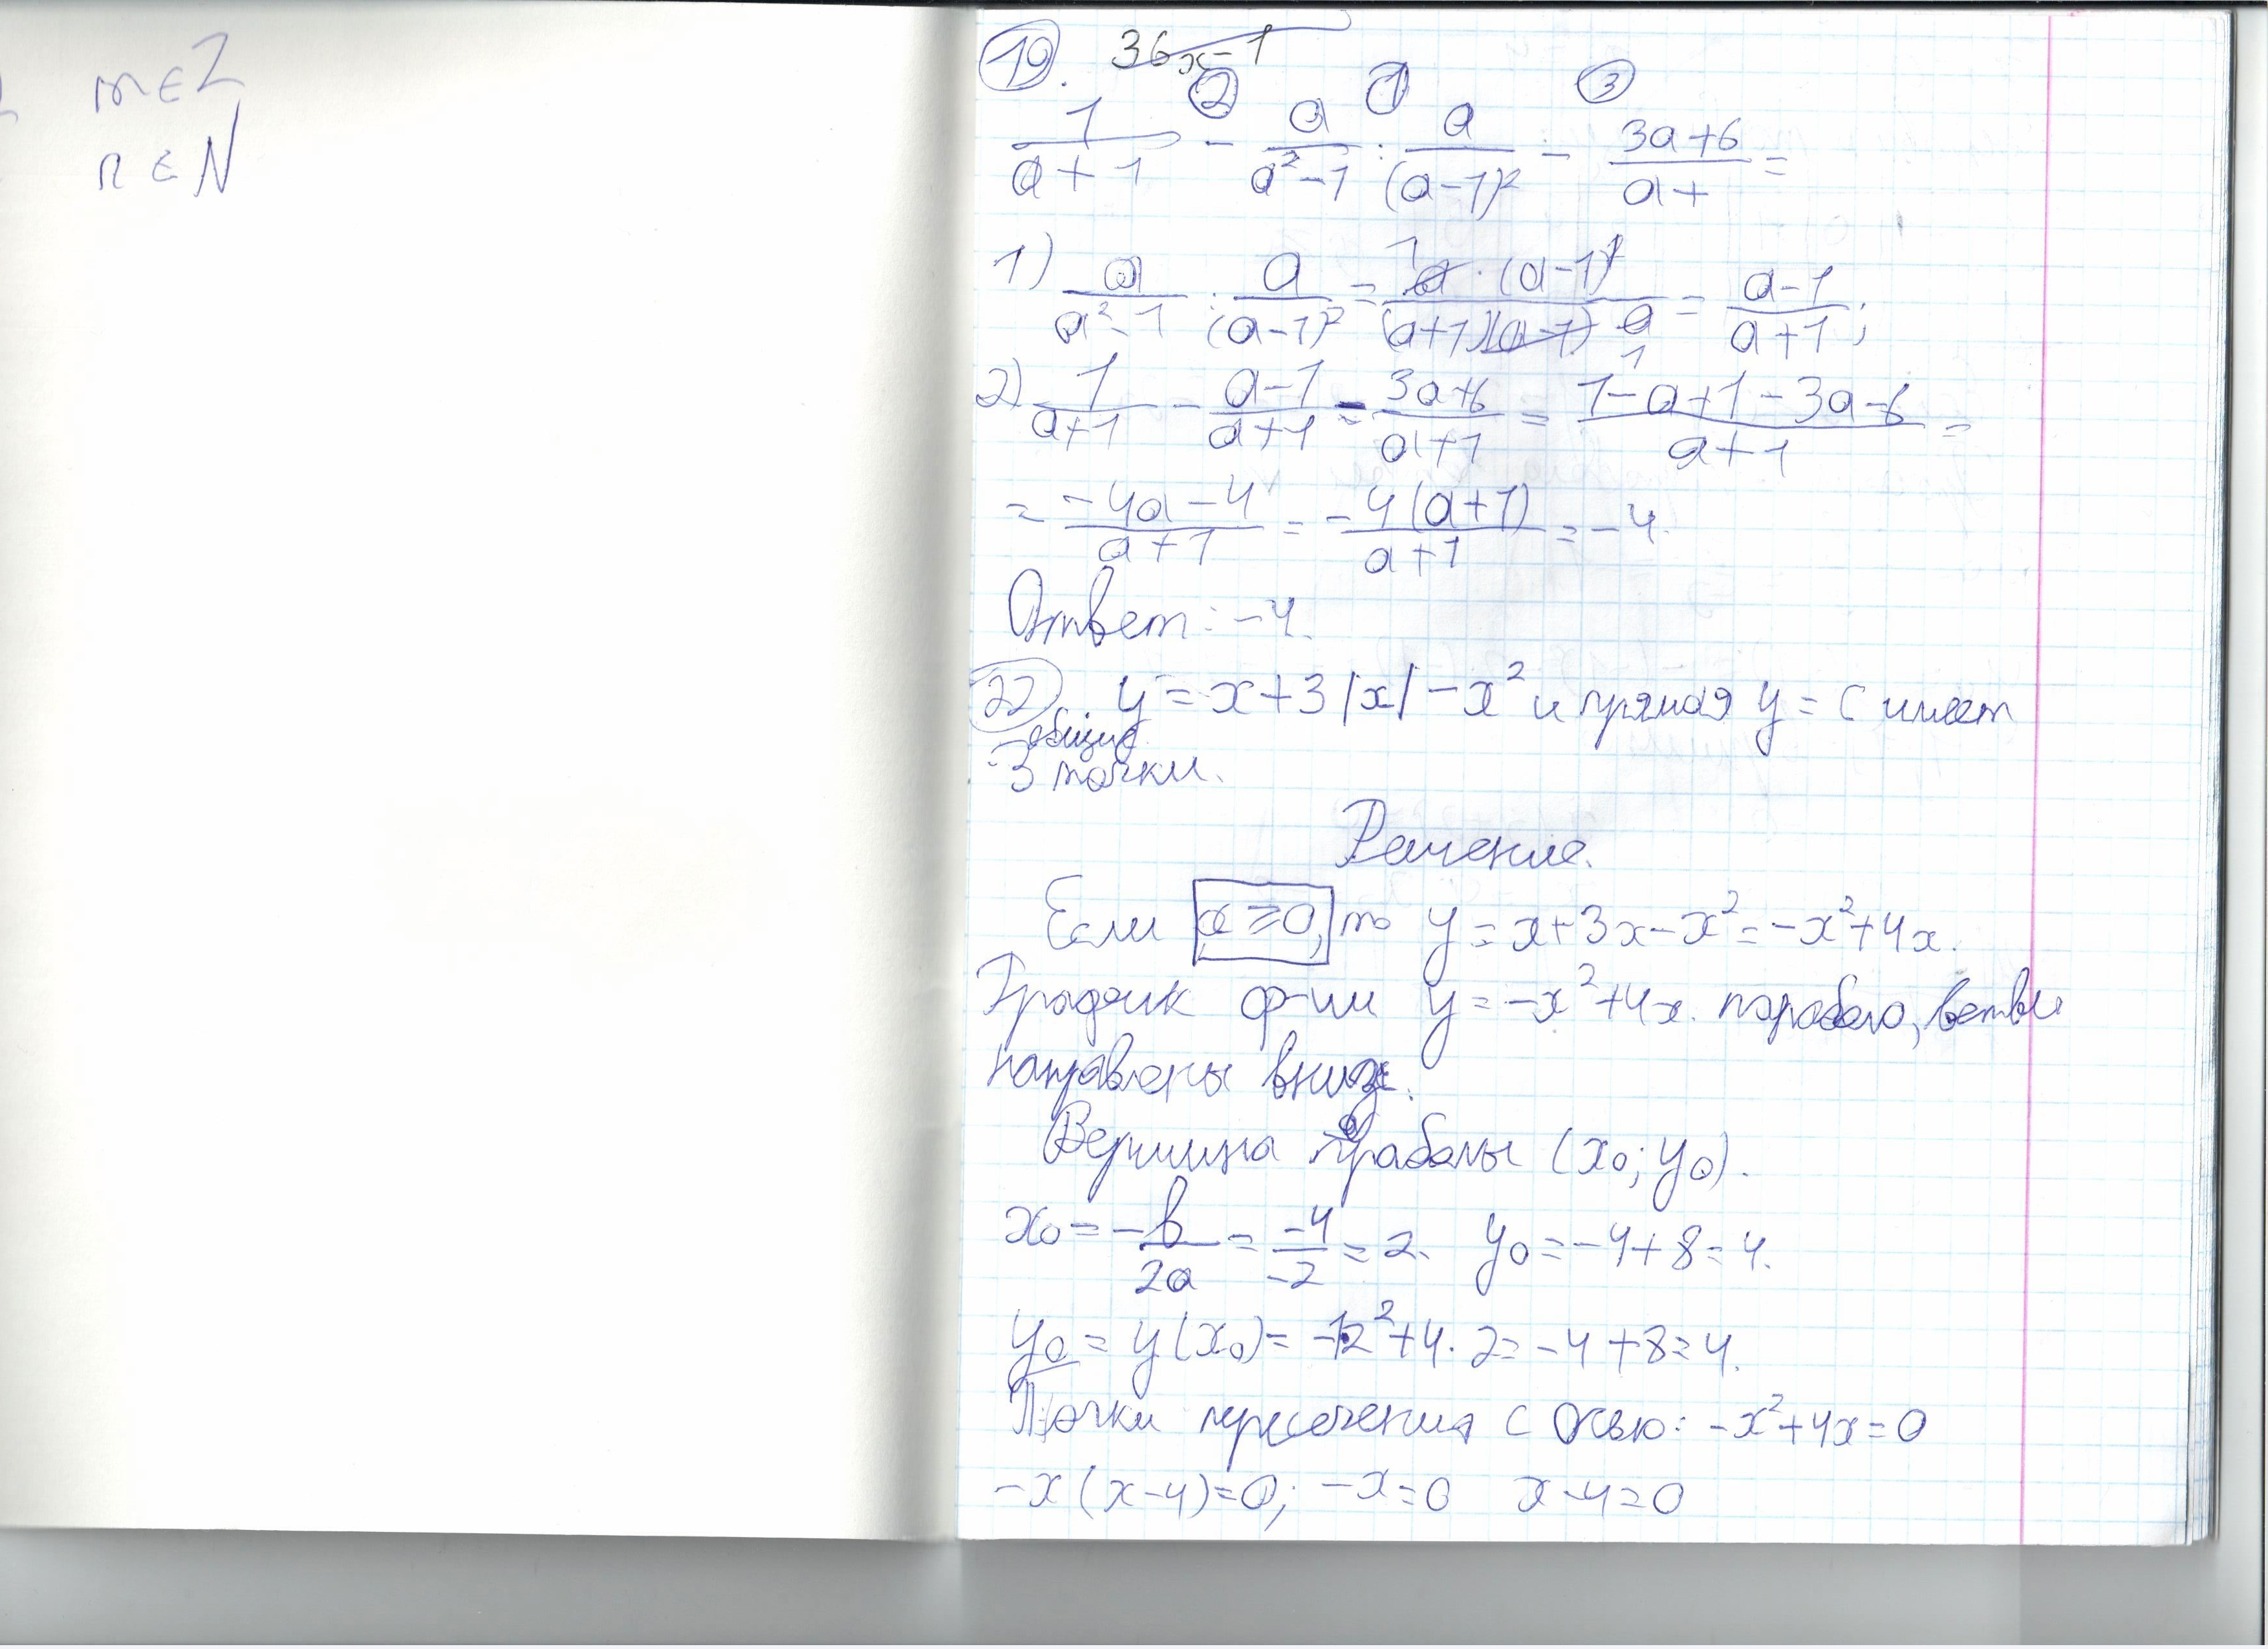 m ∈ Z
n ∈ N
19. 36x-1
2 1 3
1/(a+1) - a/(a²-1) : a/(a-1)² - (3a+6)/(a+) =
1) a/(a²-1) : a/(a-1)² = (a·(a-1)¹)/((a+1)(a-1) a) = (a-1)/(a+1);
2) 1/(a+1) - (a-1)/(a+1) - (3a+6)/(a+1) = (1-a+1-3a-6)/(a+1) =
= (-4a-4)/(a+1) = -4(a+1)/(a+1) = -4.
Ответ: -4.
22 y = x+3|x|-x² и прямая y = c имеет
общие
3 точки.
Решение.
Если x ≥ 0, то y = x+3x-x² = -x²+4x.
График ф-ии y = -x²+4x. парабола, ветви
направлены вниз.
Вершина параболы (x₀; y₀).
x₀ = -b/2a = -4/-2 = 2. y₀ = -4+8 = 4.
y₀ = y(x₀) = -2²+4·2 = -4+8 = 4.
Точки пересечения с осью: -x²+4x = 0
-x(x-4)=0; -x=0 x-4=0